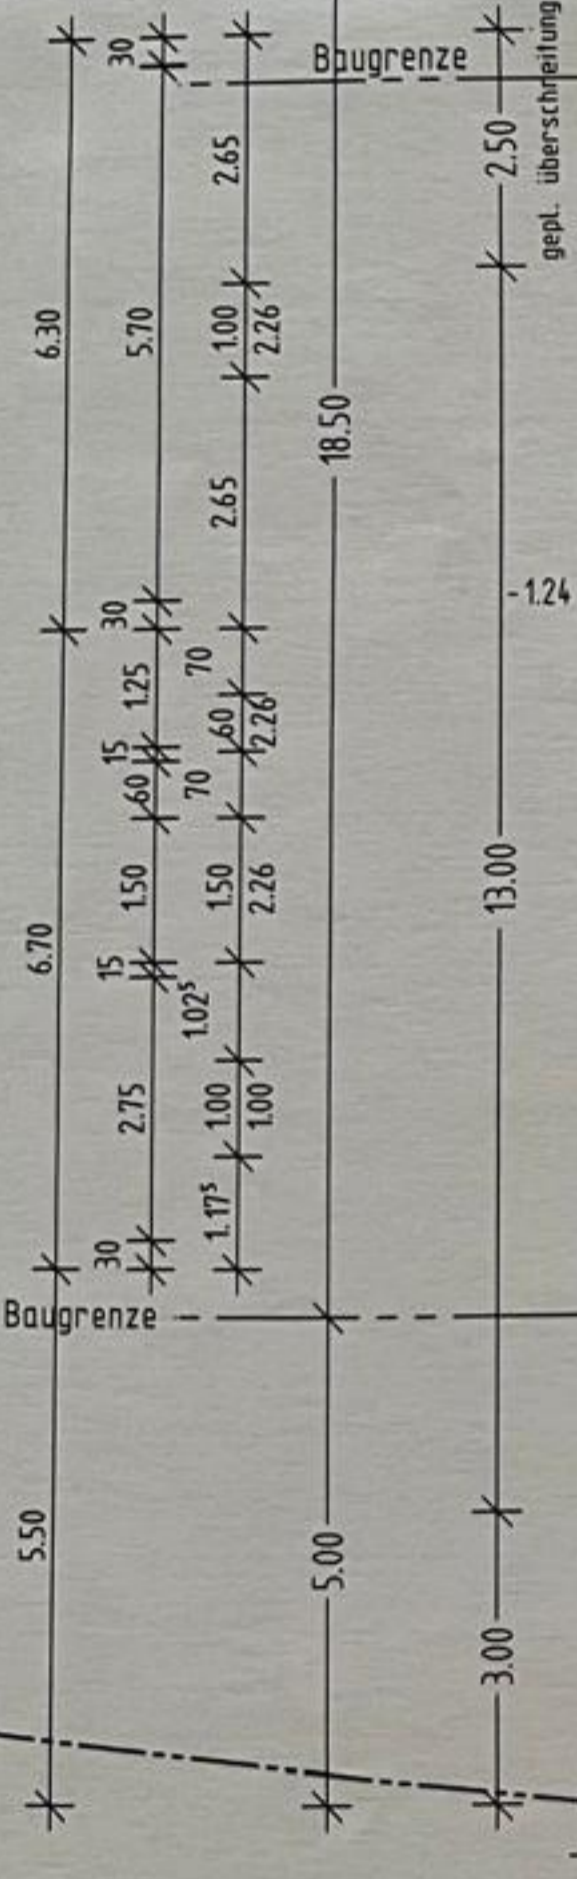 5.50
6.70
6.30
30
2.75
15
1.50
60
15
1.25
30
5.70
30
1.17⁵
1.00
1.00
1.02⁵
1.50
2.26
70
60
2.26
70
2.65
1.00
2.26
2.65
Baugrenze
Baugrenze
5.00
18.50
3.00
13.00
2.50
-1.24
gepl. überschreitung